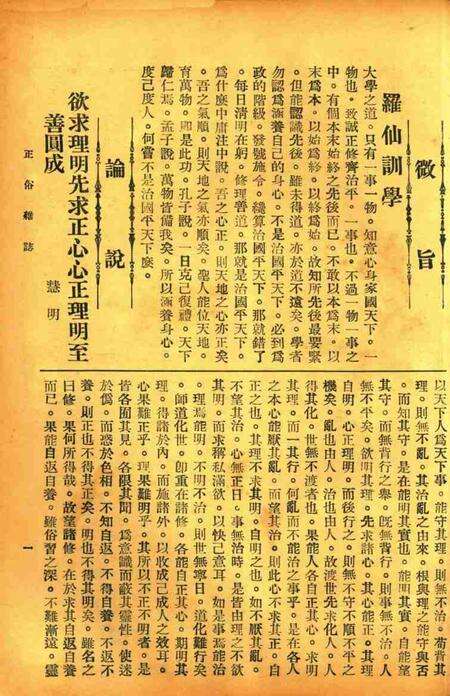 微旨
羅仙訓學
大學之道。只有一事一物。知意心身家國天下。一
物也。致誠正修齊治平。一事也。不過一物一事之
中。有個本末始終之先後而已。不敢以本為末。以
末為本。以始為終。以終為始。故知所先後最要緊
。但能認識先後。雖未得道。亦於道不遠矣。學者
勿認為涵養自己的身心。不是治國平天下。必到為
政的階級。發號施令。纔算治國平天下。那就錯了
。每日清明在躬。修理菅道。那就是治國平天下。
為什麼中庸注中說。吾之心正。則天地之心亦正矣
。吾之氣順。則天地之氣亦順矣。聖人能位天地。
育萬物。即是此功。孔子說。一日克己復禮。天下
歸仁焉。孟子說。萬物皆備我矣。所以涵養身心。
度己度人。何嘗不是治國平天下麼。
論說
欲求理明先求正心心正理明至
善圓成
慧明
以天下人為天下事。能守其理。則無不治。苟背其
理。則無不亂。其治亂之由來。根與理之能守與否
。而知其守。是在能明其實也。能明其實。自能堅
其守。而無背行之舉。既無背行。則事無不治。人
無不平矣。欲明其理。先求諸心。其心能正。其理
自明。心正理明。而後行之。則無不守不順不平之
機矣。亂也由人。治也由人。故渡世先求化人。人
得其化。世無不渡者也。果能人各自正其心。求明
其理。而一其行。何亂而不能治之事乎。是在各人
之本心能厭其亂。而望其治。則此心不求其正。自
正之也。其理不求其明。自明之也。如不厭其亂。
不望其治。心無正日。事無治時。是皆由理之不欲
其明。而求稱私滿欲。以快己意耳。如是事焉能治
。理焉能明。不明不治。則世無寧日。道化難行矣
。師道化世。卽重在諸修。各能自正其心。期明其
理。得諸於內。而施諸外。以收成己成人之效耳。
心果難正乎。理果難明乎。其所以不正不明者。是
皆各囿其見。各限其聞。為意識而蔽其靈性。使迷
於僞。而惑於色相。不知自返。不得自養。不返不
養。則正也不得其正矣。明也不得其明矣。雖名之
曰修。果何所得哉。故望諸修。在於求其自返自養
而已。果能自返自養。雖俗習之深。不難漸遠。靈
正俗雜誌
一